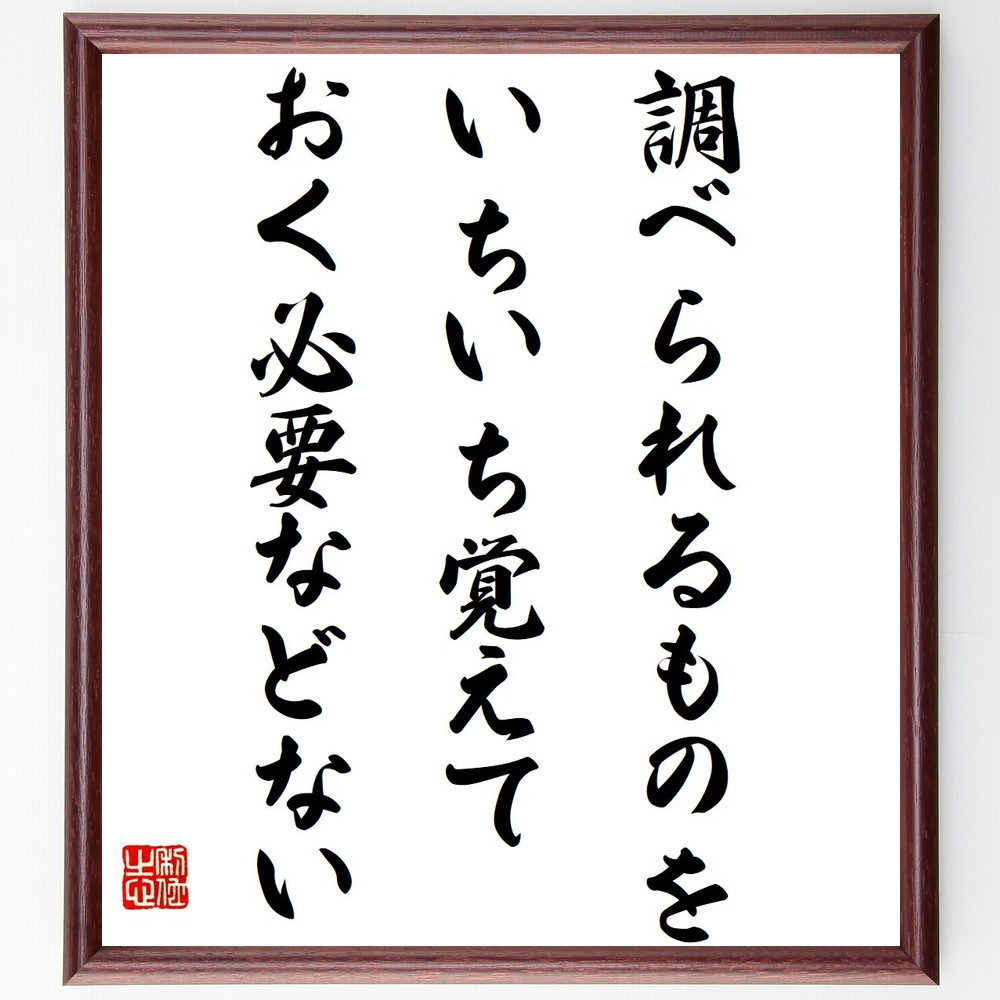 調べられるものを
いちいち覚えて
おく必要などない